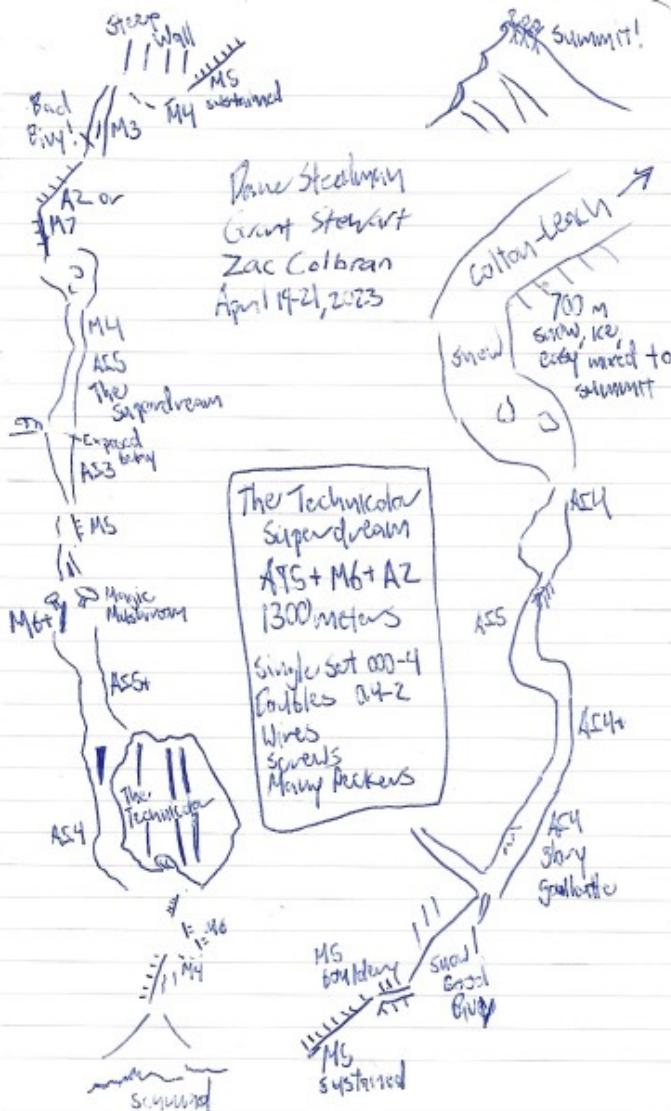 Steep
Wall
M5
sustained
M4
Bad
Bivy!
M3
A2 or
M7
M4
AI5
The
Superdream
Exposed
bivy
AI3
M5
M6+
Magic
Mushroom
AI5+
The
Technicolor
AI4
M6
M4
Schrund
Dane Steadman
Grant Stewart
Zac Colbran
April 19-21, 2023
The Technicolor
Superdream
AI5+ M6+ A2
1300 meters
Single Set 000-4
Doubles 0.4-2
Wires
Screws
Many Peckers
Summit!
Colton-Leach
700 m
snow, ice,
easy mixed to
summit
snow
AI4
AI5
AI4+
AI4
Glory
Snow!
Good
Bivy
M5
bouldery
M5
sustained